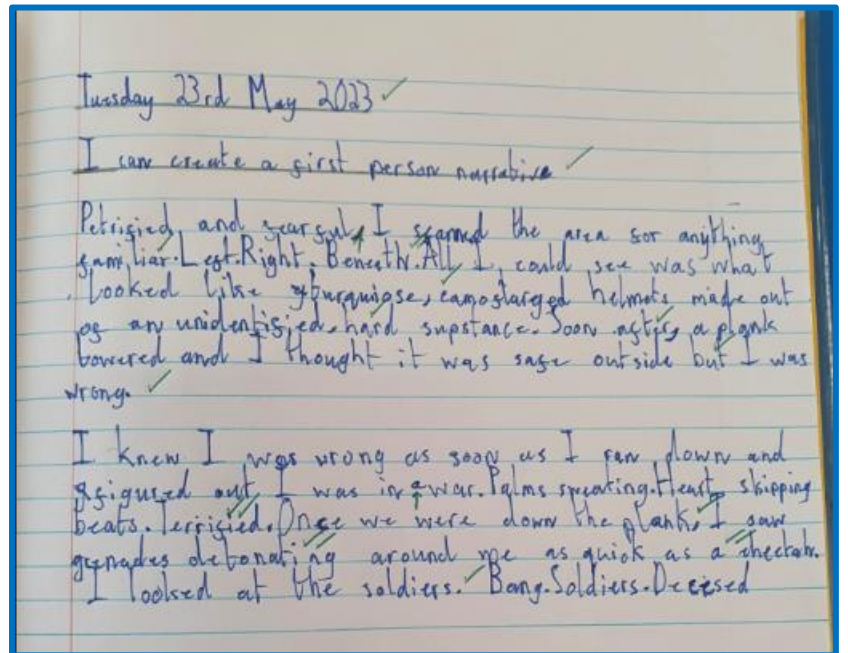 Tuesday 23rd May 2023
I can create a first person narrative
Petrified and fearful, I scanned the area for anything
familiar. Left. Right. Beneath. All I could see was what
looked like turquiose, camoflarged helmets made out
of an unidentified, hard supstance. Soon after, a plank
lowered and I thought it was safe outside but I was
wrong.
I knew I was wrong as soon as I ran down and
figured out I was in a war. Palms sweating. Heart skipping
beats. Terrified. Once we were down the plank, I saw
grenades detonating around me as quick as a cheetah.
I looked at the soldiers. Bang. Soldiers. Decesed